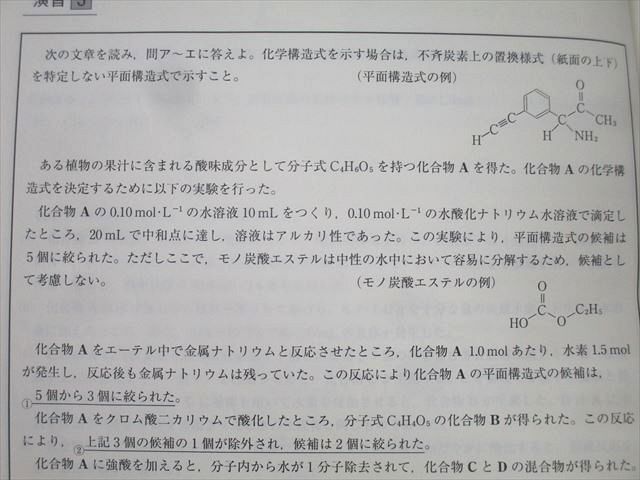 演習 5
次の文章を読み，問ア〜エに答えよ。化学構造式を示す場合は，不斉炭素上の置換様式（紙面の上下）
を特定しない平面構造式で示すこと。 （平面構造式の例）
O
CH₃
H H NH₂
ある植物の果汁に含まれる酸味成分として分子式C₄H₆O₅を持つ化合物Aを得た。化合物Aの化学構
造式を決定するために以下の実験を行った。
化合物Aの0.10 mol·L⁻¹の水溶液10 mLをつくり，0.10 mol·L⁻¹の水酸化ナトリウム水溶液で滴定し
たところ，20 mLで中和点に達し，溶液はアルカリ性であった。この実験により，平面構造式の候補は
5個に絞られた。ただしここで，モノ炭酸エステルは中性の水中において容易に分解するため，候補とし
て考慮しない。 （モノ炭酸エステルの例）
O
HO O C₂H₅
化合物Aをエーテル中で金属ナトリウムと反応させたところ，化合物A 1.0 molあたり，水素1.5 mol
が発生し，反応後も金属ナトリウムは残っていた。この反応により化合物Aの平面構造式の候補は，
①5個から3個に絞られた。
化合物Aをクロム酸二カリウムで酸化したところ，分子式C₄H₄O₅の化合物Bが得られた。この反応
により，②上記3個の候補の1個が除外され，候補は2個に絞られた。
化合物Aに強酸を加えると，分子内から水が1分子除去されて，化合物CとDの混合物が得られた。